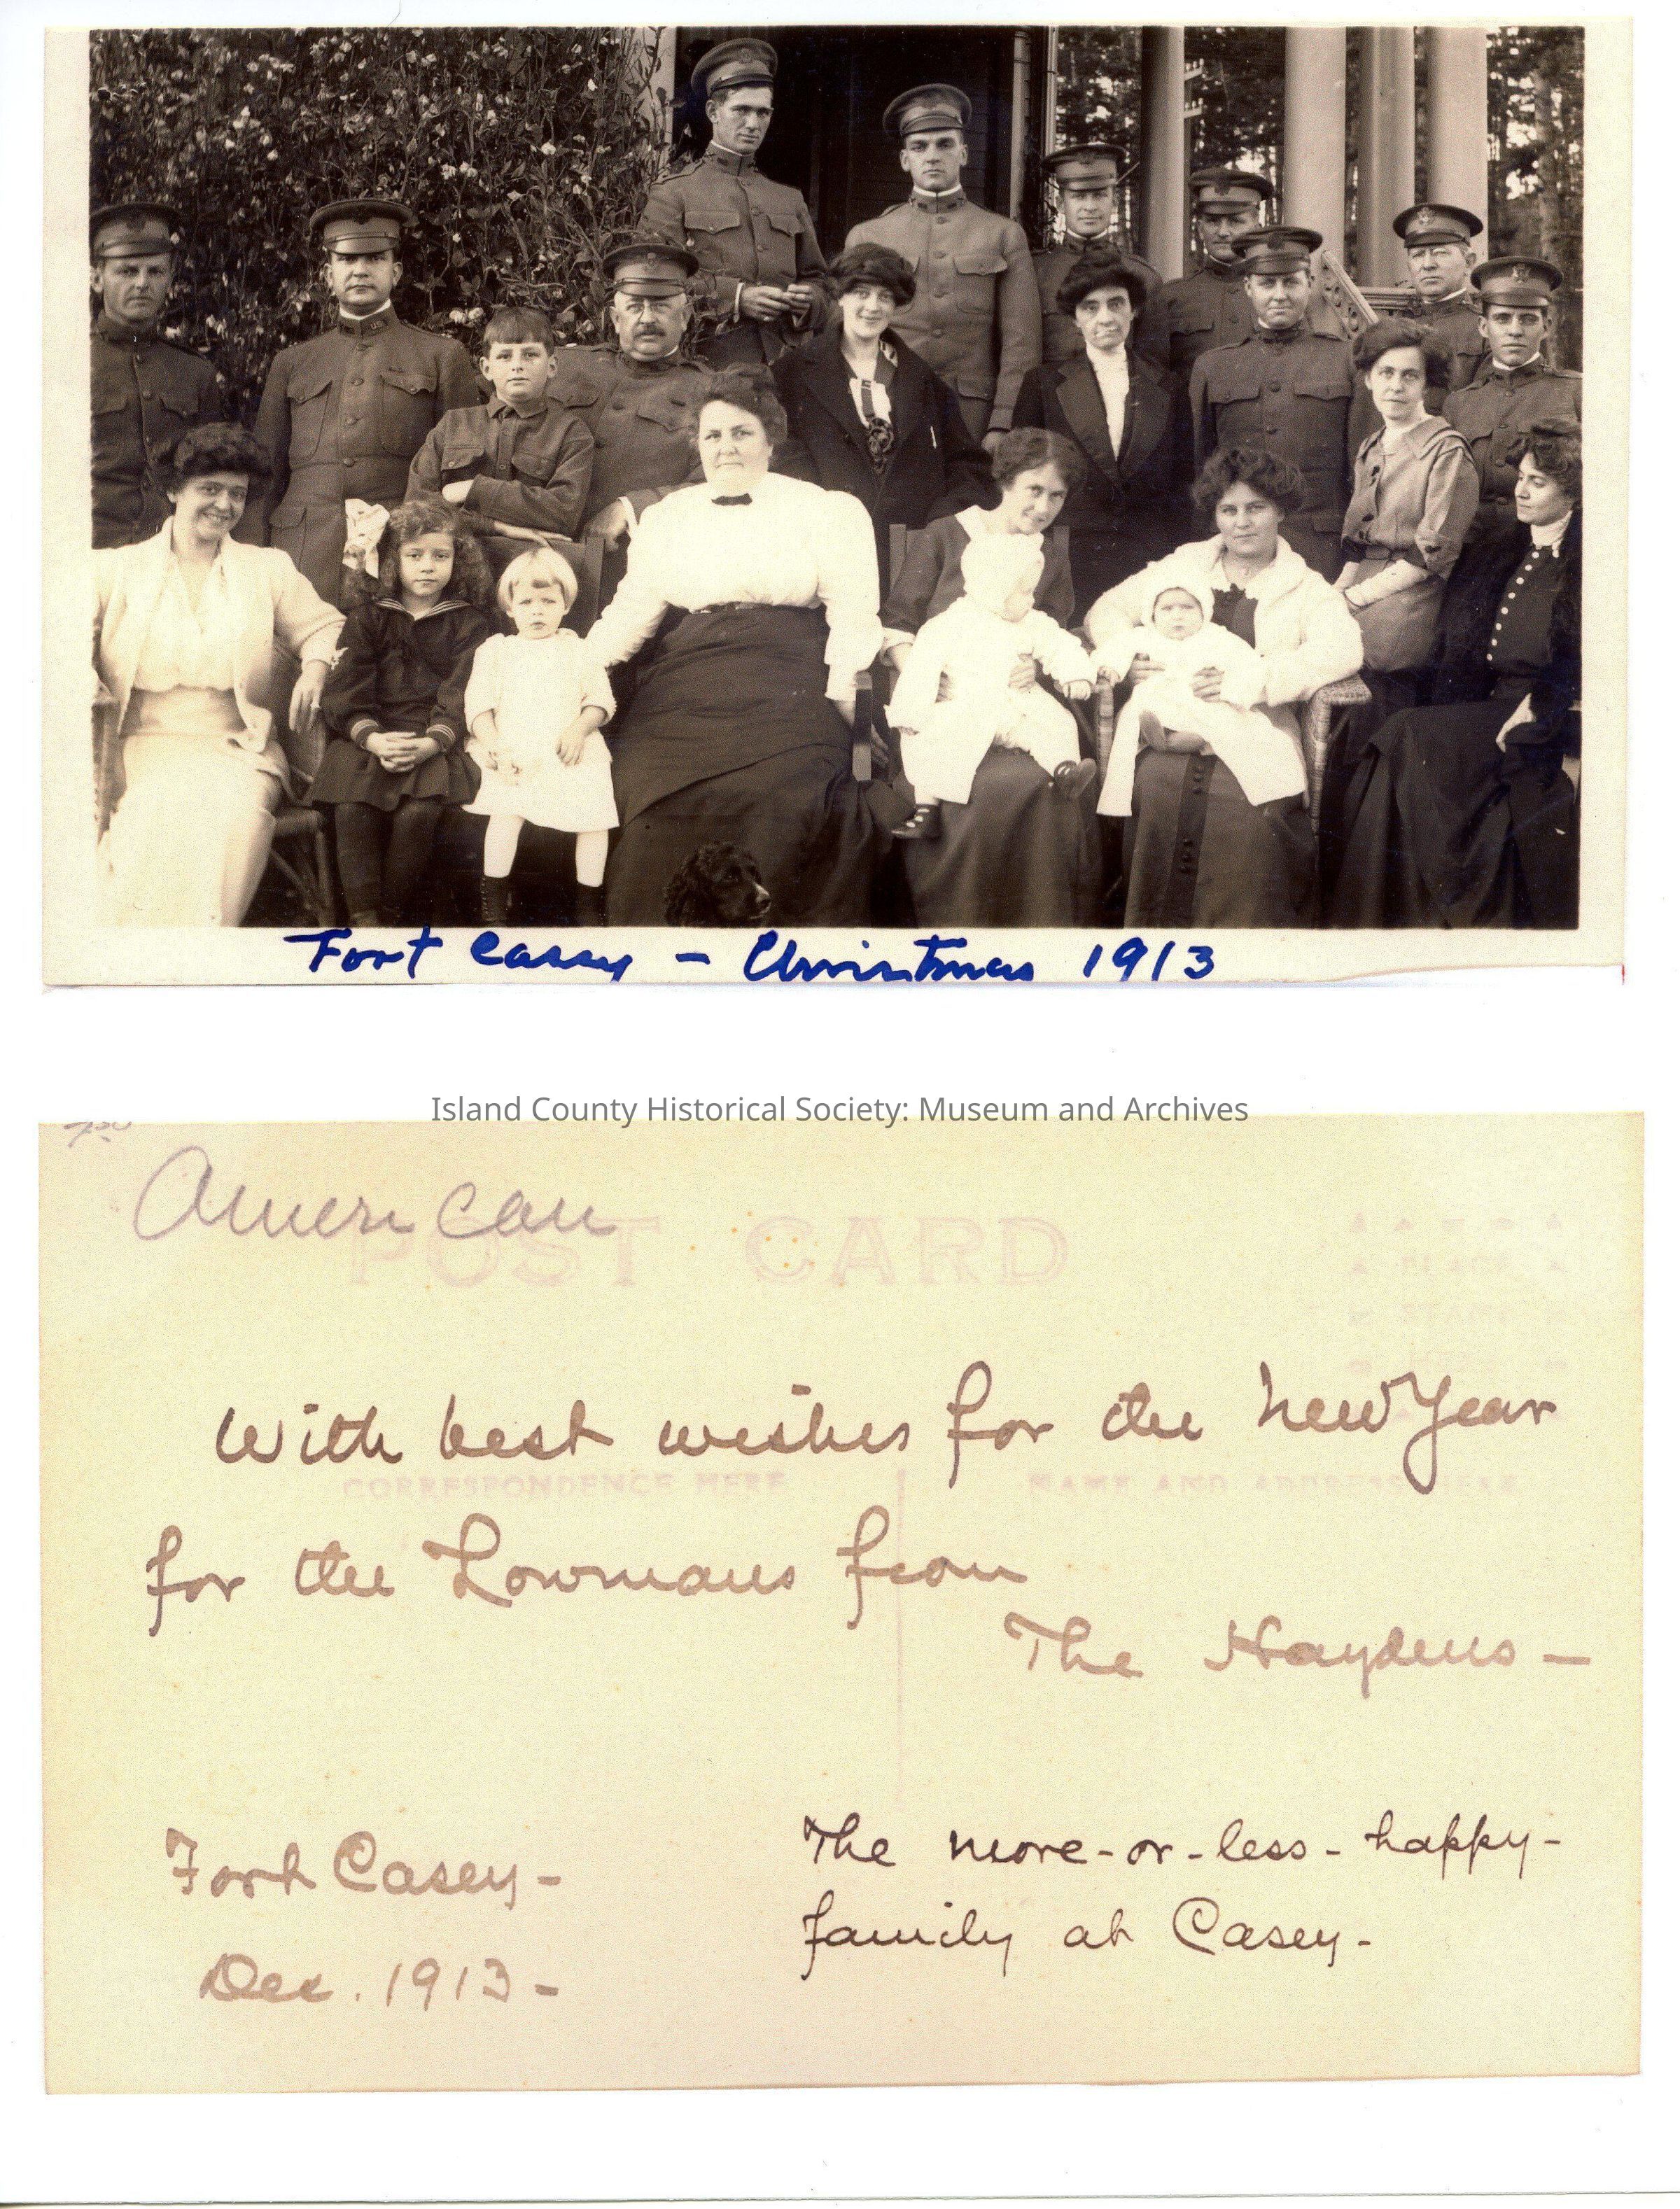 Fort Casey - Christmas 1913
Island County Historical Society: Museum and Archives
American
POST CARD
With best wishes for the New Year
CORRESPONDENCE HERE
NAME AND ADDRESS HERE
for the Lowmans from
The Haydens -
The more-or-less-happy-
family at Casey.
Fort Casey -
Dec. 1913 -